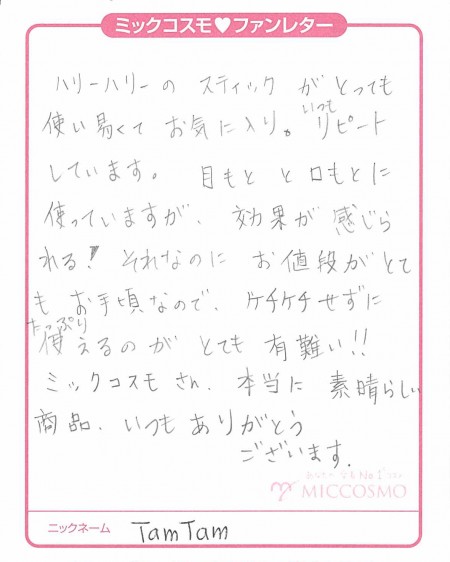 ミックコスモ♥ファンレター
ハリーハリーの スティック が とっても
使い易くて お気に入り。いつもリピート
しています。 目もと と 口もとに
使っていますが、効果が 感じら
れる! それなのに お値段が とて
も お手頃なので、ケチケチせずに
たっぷり使えるのが とても 有難い!!
ミックコスモ さん、本当に 素晴らしい
商品、いつも ありがとう
ございます.
MICCOSMO
ニックネーム TamTam